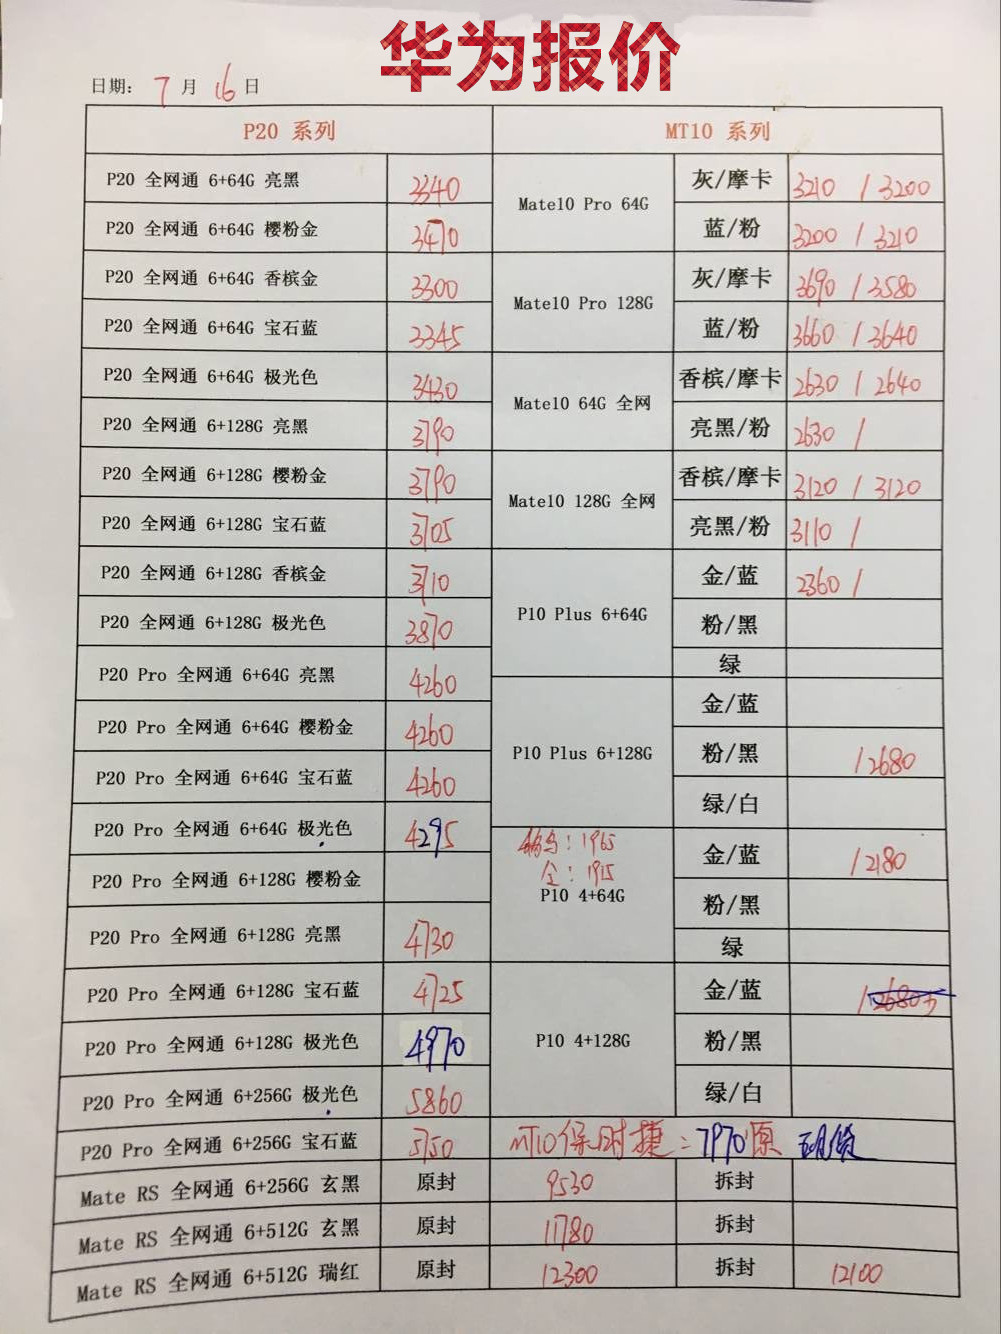 华为报价
日期: 7 月 16 日
P20 系列 MT10 系列
P20 全网通 6+64G 亮黑 3340
P20 全网通 6+64G 樱粉金 3470
P20 全网通 6+64G 香槟金 3300
P20 全网通 6+64G 宝石蓝 3345
P20 全网通 6+64G 极光色 3430
P20 全网通 6+128G 亮黑 3790
P20 全网通 6+128G 樱粉金 3790
P20 全网通 6+128G 宝石蓝 3705
P20 全网通 6+128G 香槟金 3710
P20 全网通 6+128G 极光色 3870
P20 Pro 全网通 6+64G 亮黑 4260
P20 Pro 全网通 6+64G 樱粉金 4260
P20 Pro 全网通 6+64G 宝石蓝 4260
P20 Pro 全网通 6+64G 极光色 4295
P20 Pro 全网通 6+128G 樱粉金
P20 Pro 全网通 6+128G 亮黑 4730
P20 Pro 全网通 6+128G 宝石蓝 4725
P20 Pro 全网通 6+128G 极光色 4970
P20 Pro 全网通 6+256G 极光色 5860
P20 Pro 全网通 6+256G 宝石蓝 5750
Mate10 Pro 64G
灰/摩卡 3210 / 3200
蓝/粉 3200 / 3210
Mate10 Pro 128G
灰/摩卡 3690 / 3580
蓝/粉 3660 / 3640
Mate10 64G 全网
香槟/摩卡 2630 / 2640
亮黑/粉 2630 /
Mate10 128G 全网
香槟/摩卡 3120 / 3120
亮黑/粉 3110 /
P10 Plus 6+64G
金/蓝 2360 /
粉/黑
绿
P10 Plus 6+128G
金/蓝
粉/黑 / 2680
绿/白
: 1965
金: 1915
P10 4+64G
金/蓝 / 2180
粉/黑
绿
P10 4+128G
金/蓝 /
粉/黑
绿/白
MT10保时捷: 7970原
Mate RS 全网通 6+256G 玄黑 原封 9530 拆封
Mate RS 全网通 6+512G 玄黑 原封 11780 拆封
Mate RS 全网通 6+512G 瑞红 原封 12300 拆封 12100